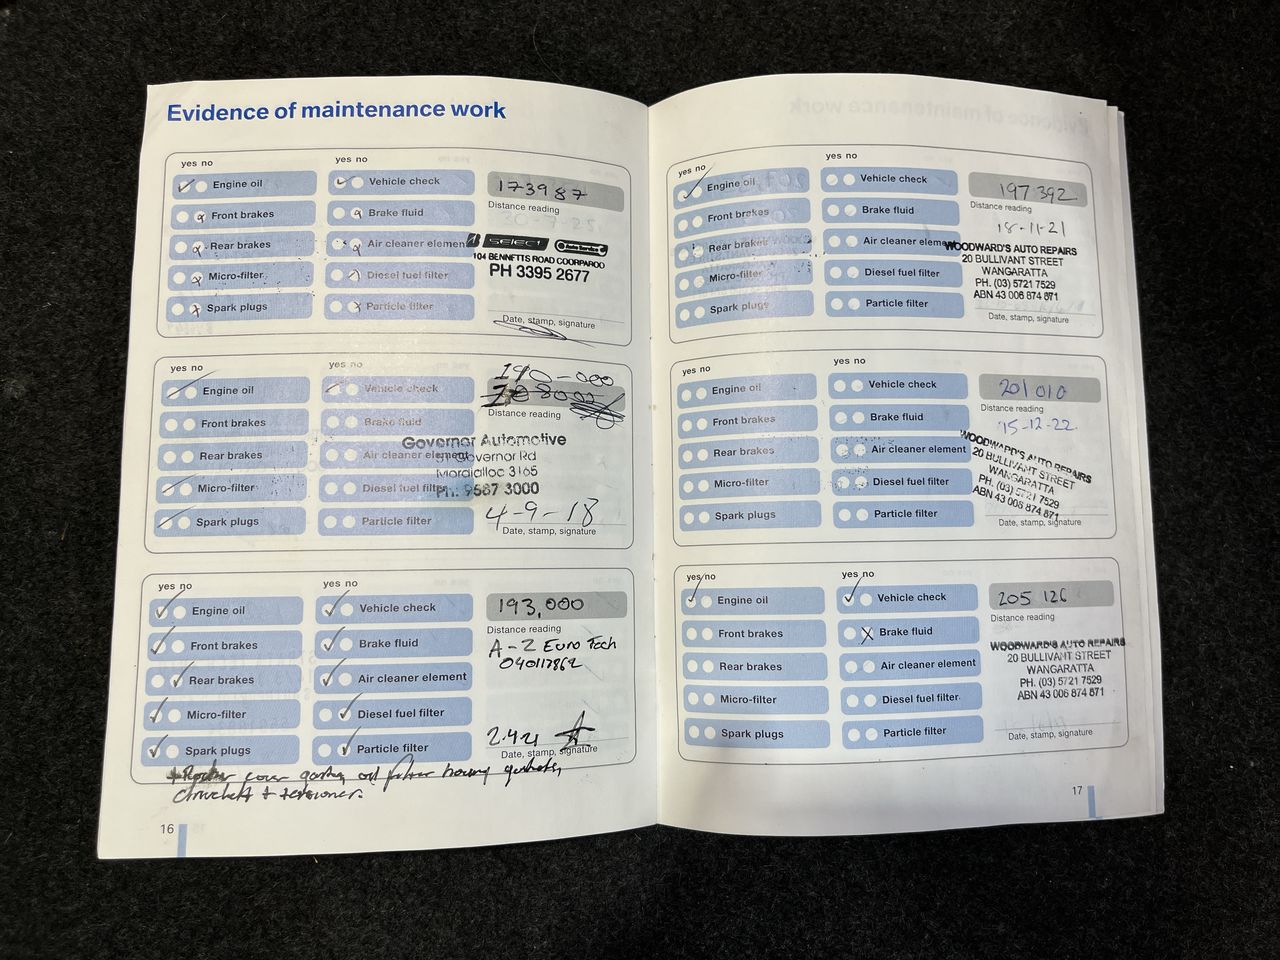 Evidence of maintenance work
yes no
yes no
Engine oil
Vehicle check
173987
Distance reading
Front brakes
Brake fluid
Rear brakes
Air cleaner element
SELECT
Auto Service
104 BENNETTS ROAD COORPAROO
PH 3395 2677
Micro-filter
Diesel fuel filter
Spark plugs
Particle filter
Date, stamp, signature
yes no
yes no
190-000
Engine oil
Vehicle check
Distance reading
Front brakes
Brake fluid
Governor Automotive
Governor Rd
Mordialloc 3165
PH. 9587 3000
Rear brakes
Air cleaner element
Micro-filter
Diesel fuel filter
4-9-18
Spark plugs
Particle filter
Date, stamp, signature
yes no
yes no
Engine oil
Vehicle check
193,000
Distance reading
Front brakes
Brake fluid
A-Z Euro Tech
040117862
Rear brakes
Air cleaner element
Micro-filter
Diesel fuel filter
2.4.21
Spark plugs
Particle filter
Date, stamp, signature
+ cover gasket, oil filter housing gaskets,
+ tensioner.
16
yes no
yes no
Engine oil
Vehicle check
197392
Distance reading
18-11-21
Front brakes
Brake fluid
Rear brakes
Air cleaner element
WOODWARD'S AUTO REPAIRS
20 BULLIVANT STREET
WANGARATTA
PH. (03) 5721 7529
ABN 43 006 874 871
Micro-filter
Diesel fuel filter
Spark plugs
Particle filter
Date, stamp, signature
yes no
yes no
Engine oil
Vehicle check
201010
Distance reading
15-12-22
Front brakes
Brake fluid
Rear brakes
Air cleaner element
WOODWARD'S AUTO REPAIRS
20 BULLIVANT STREET
WANGARATTA
PH. (03) 5721 7529
ABN 43 006 874 871
Micro-filter
Diesel fuel filter
Spark plugs
Particle filter
Date, stamp, signature
yes no
yes no
Engine oil
Vehicle check
205 126
Distance reading
Front brakes
Brake fluid
WOODWARD'S AUTO REPAIRS
20 BULLIVANT STREET
WANGARATTA
PH. (03) 5721 7529
ABN 43 006 874 871
Rear brakes
Air cleaner element
Micro-filter
Diesel fuel filter
Spark plugs
Particle filter
Date, stamp, signature
17